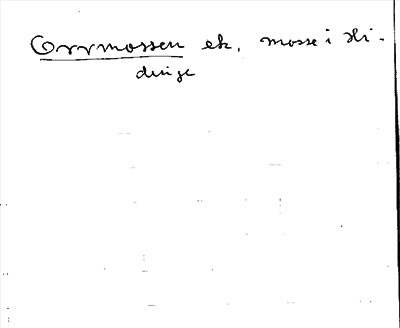 Orrmossen ek. mosse i Hi-
deruge